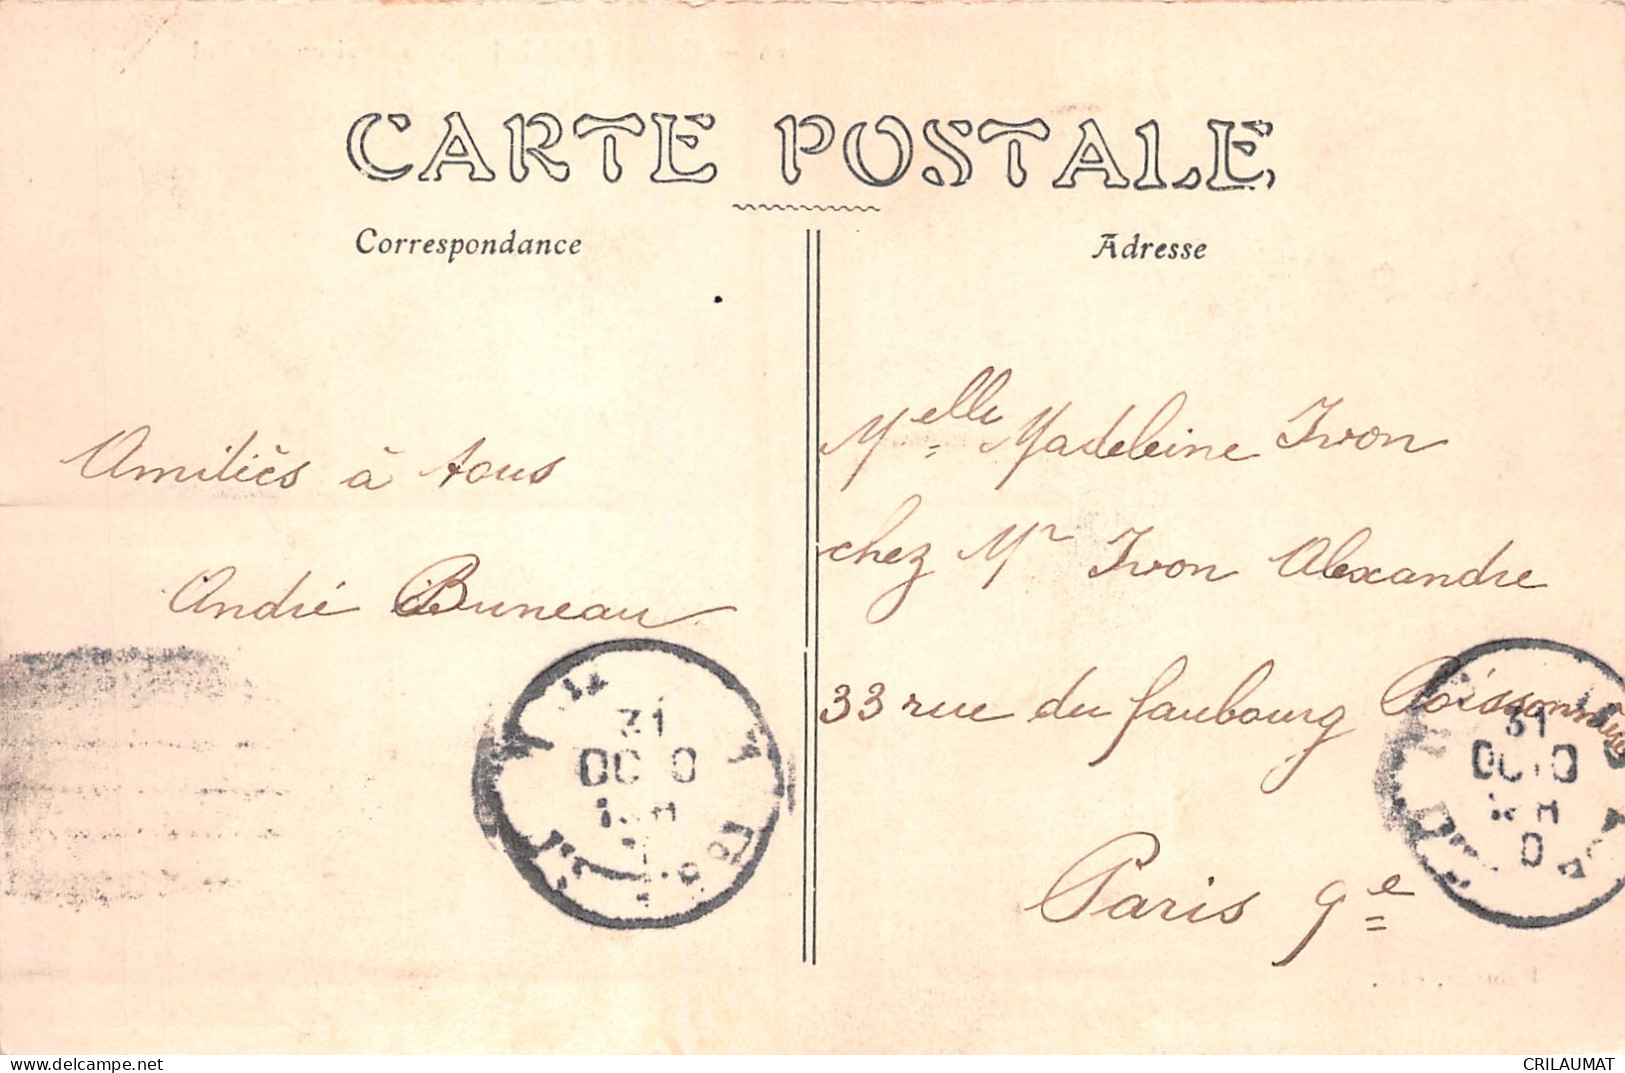 CARTE POSTALE
Correspondance
Adresse
Amitiés à tous
André Buneau
Melle Madeleine Ivon
chez Mr Ivon Alexandre
33 rue du faubourg Poissonnière
Paris 9e
31
OC 0
31
OC 0
delcampe.net
CRILAUMAT